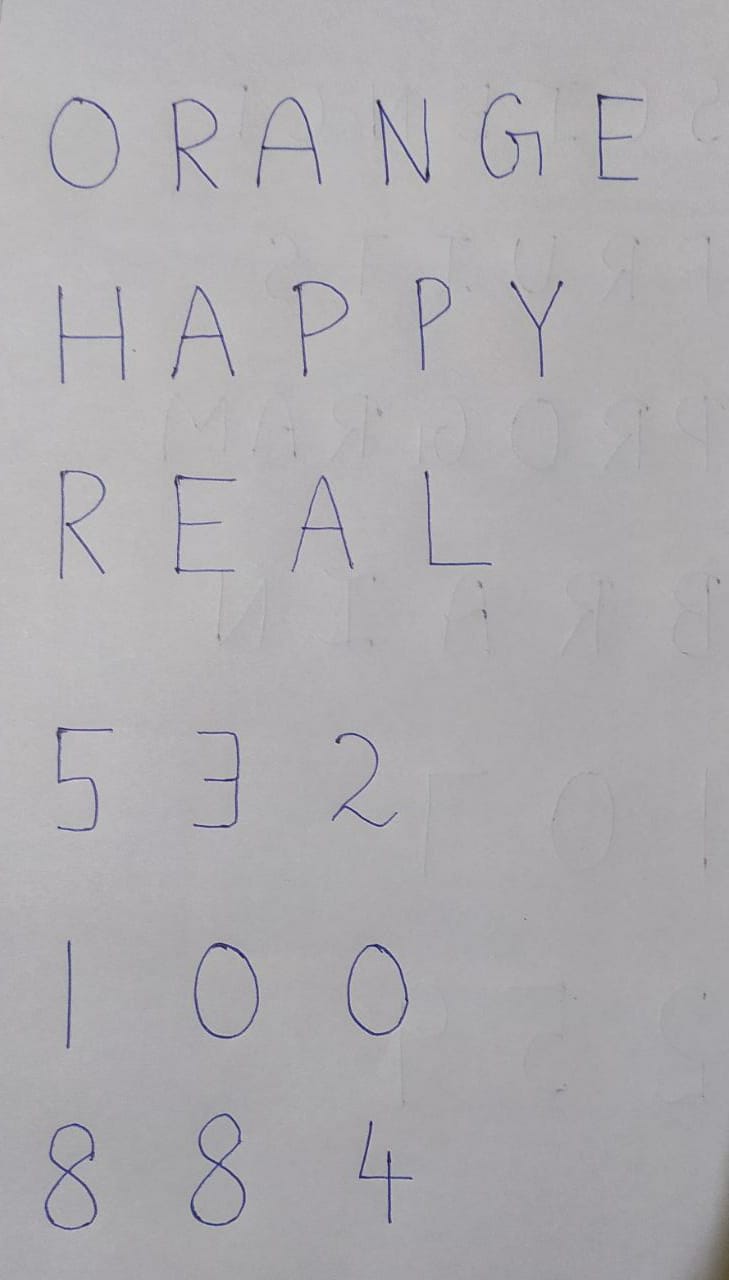 ORANGE
HAPPY
REAL
532
100
884